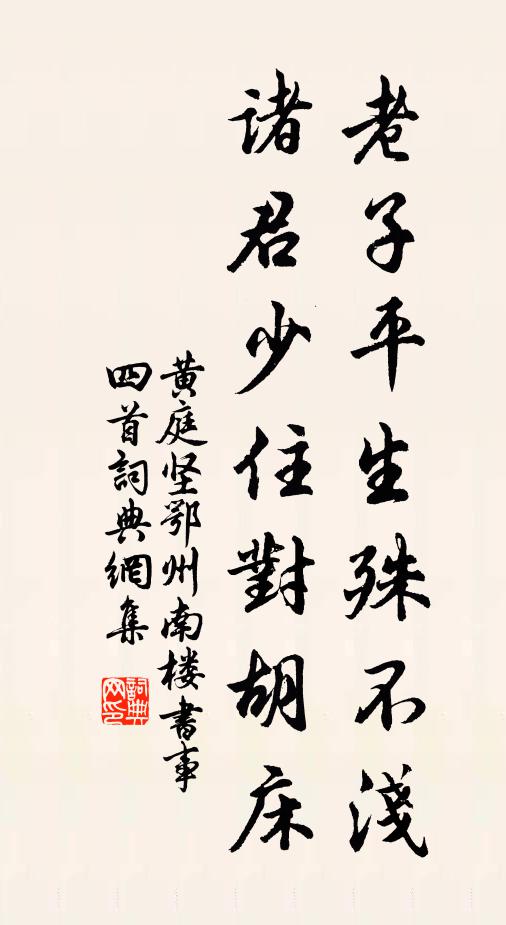 老子平生殊不淺
諸君少住對胡床
黄庭坚鄂州南楼書事
四首詞典網集
詞典网印